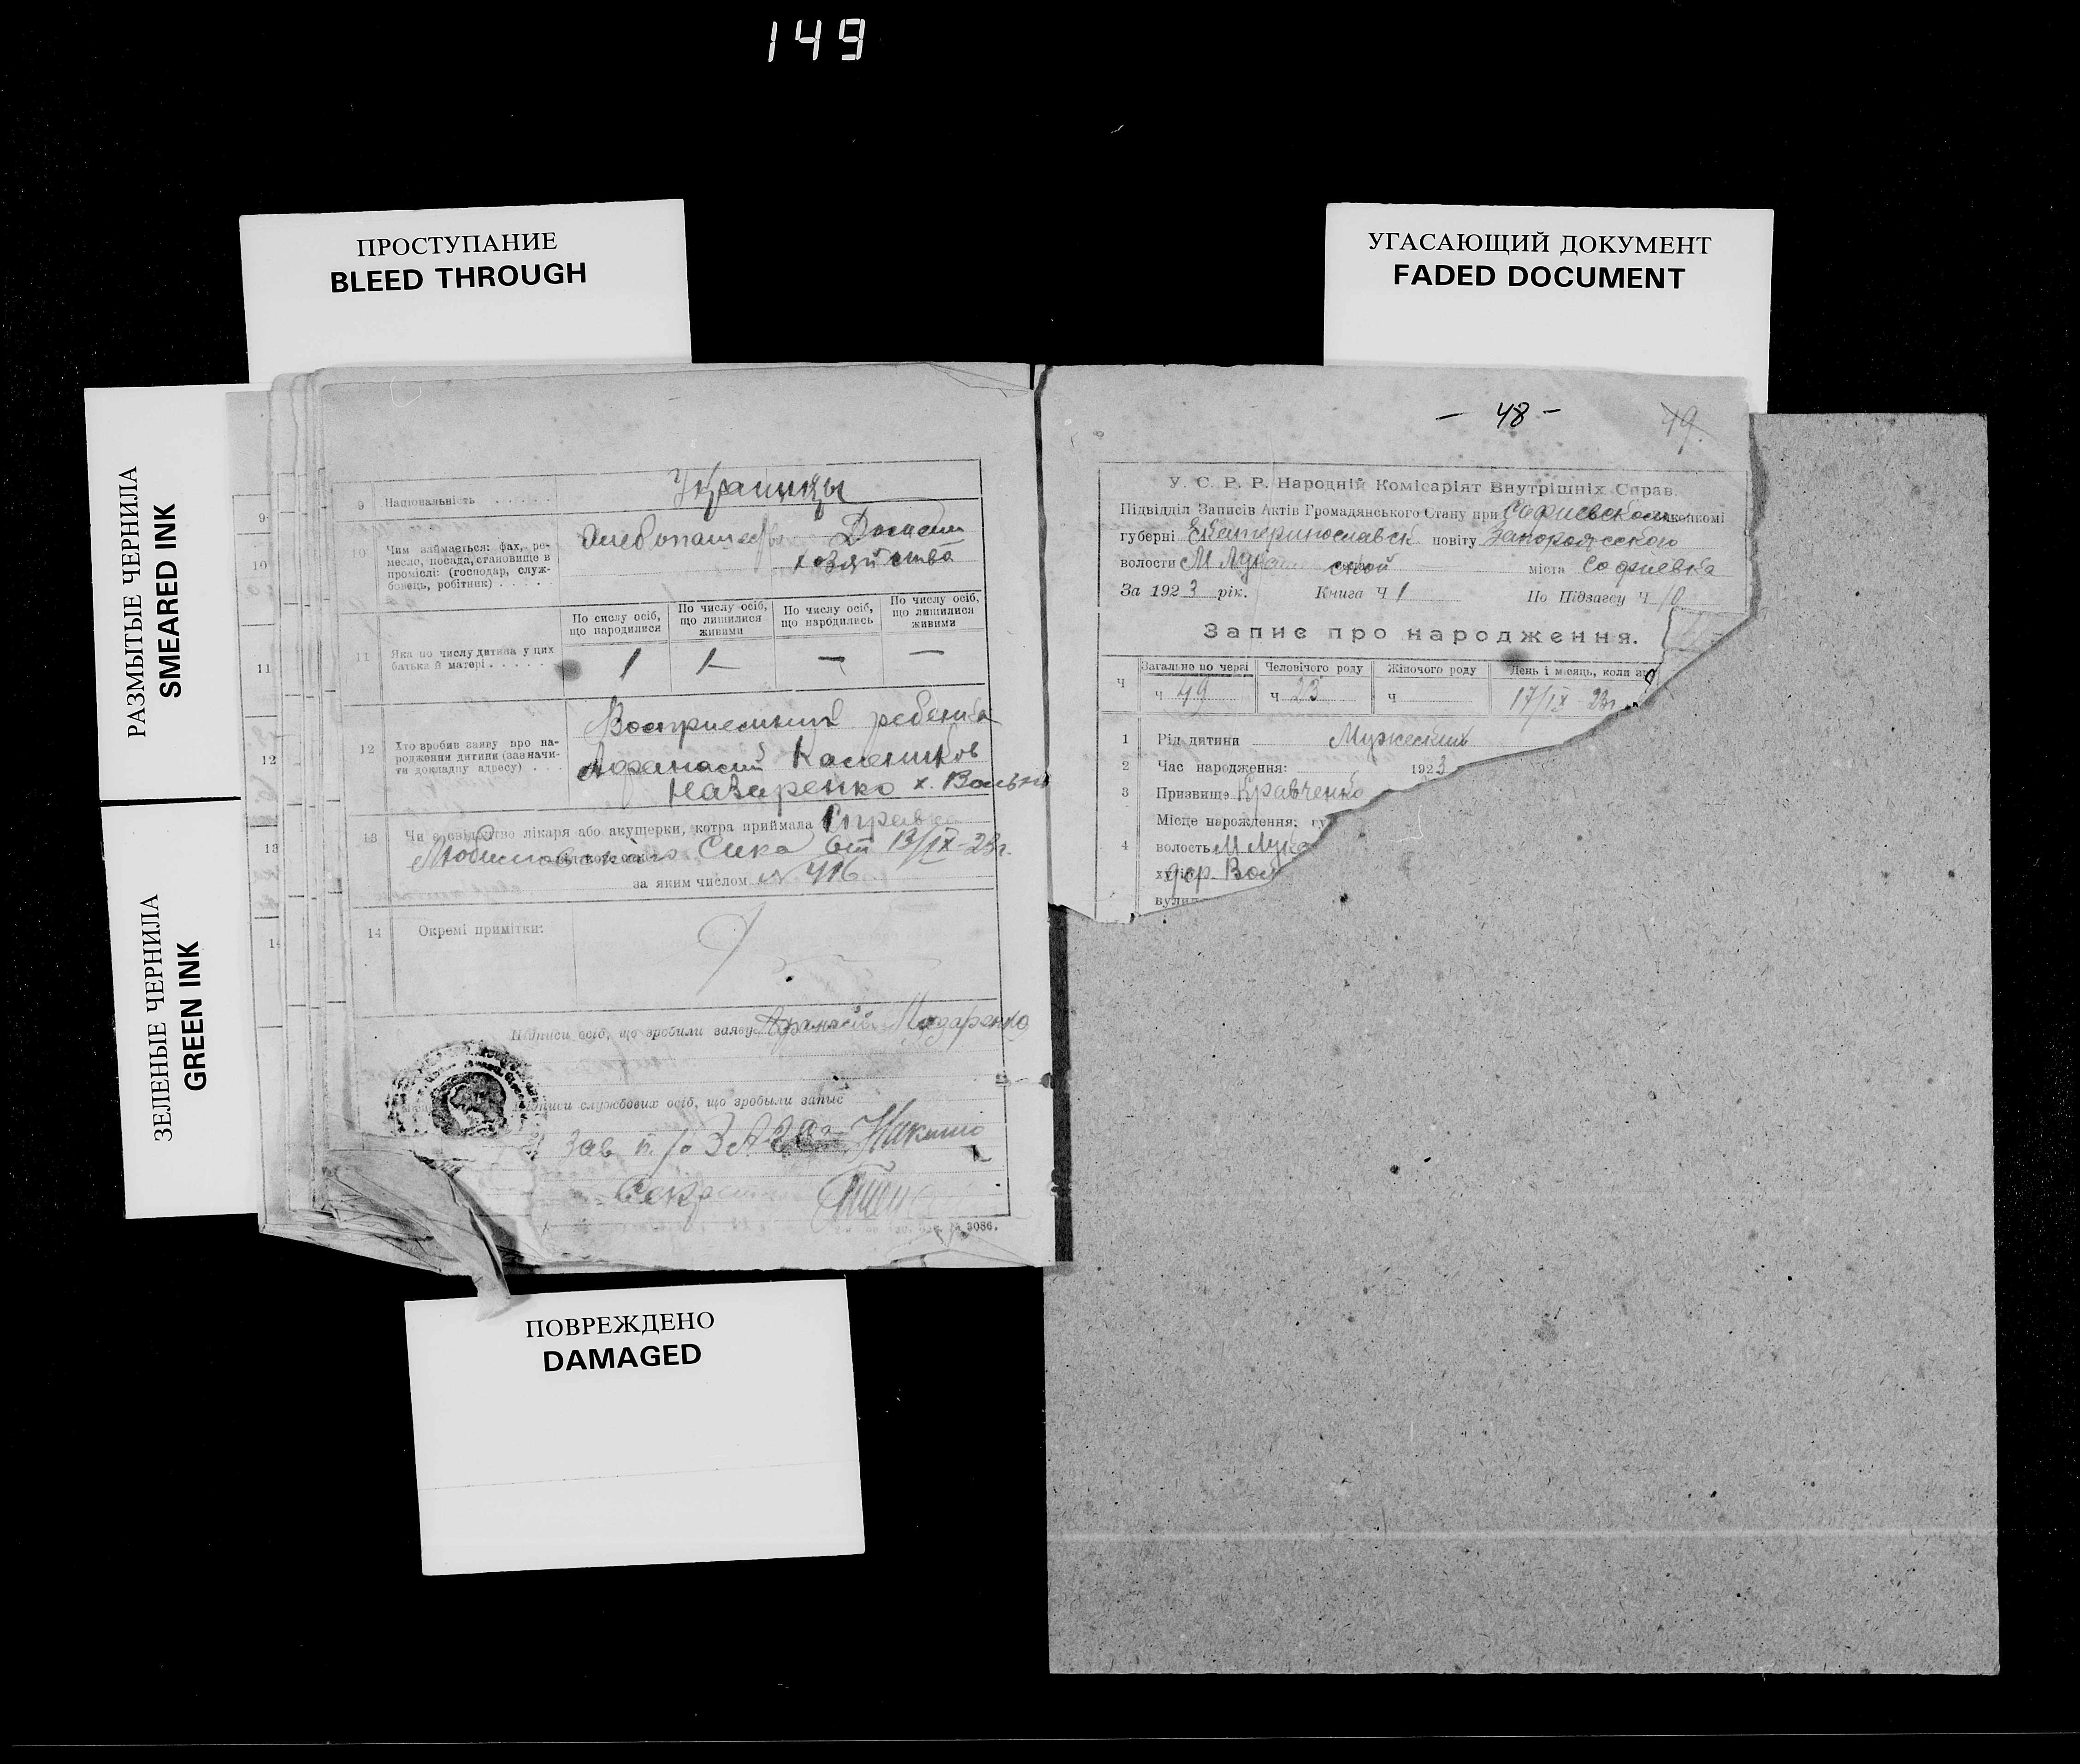 149
ПРОСТУПАНИЕ
BLEED THROUGH
УГАСАЮЩИЙ ДОКУМЕНТ
FADED DOCUMENT
РАЗМЫТЫЕ ЧЕРНИЛА
SMEARED INK
ЗЕЛЕНЫЕ ЧЕРНИЛА
GREEN INK
9
10
11
12
13
9 Національність
Украинцы
10 Чим займається: фах, ре-
месло, посада, становище в
промислі: (господар, служ-
бовець, робітник)
Домаш
хозяйство
По числу осіб, що народилися
По числу осіб, що лишилися живими
По числу осіб, що народились
По числу осіб, що лишилися живими
11 Яка по числу дитина у цих
батька й матері
1 1 — —
12 Хто зробив заяву про на-
родження дитини (зазначи-
ти докладну адресу)
ребенка
Афанасий
Назаренко х.
13 Чи є свідоцтво лікаря або акушерки, котра приймала Справка
от 13/IX-23г.
за яким числом № 416
14 Окремі примітки:
Підписи осіб, що зробили заяву Афанасий Назаренко
Підписи службових осіб, що зробыли запис
Зав. п/о ЗАГС
Секр
3086.
— 48 —
49.
У. С. Р. Р. Народній Комісаріят Внутрішніх Справ.
Підвідділ Записів Актів Громадянського Стану при Софиевском
губерні Екатеринославск повіту Запорожсского
волости М Лука ской міста Софиевка
За 1923 рік. Книга Ч 1 По Підзагсу Ч 10
Запис про народження.
Ч
Загальне по черзі
Ч 49
Чоловічого роду
Ч 23
Жіночого роду
Ч
День і місяць, коли
17/IX 23г.
1 Рід дитини Мужеский
2 Час народження: 1923
3 Призвище Кравченко
Місце народження:
4 волость М Лука
дер. Вол
ПОВРЕЖДЕНО
DAMAGED